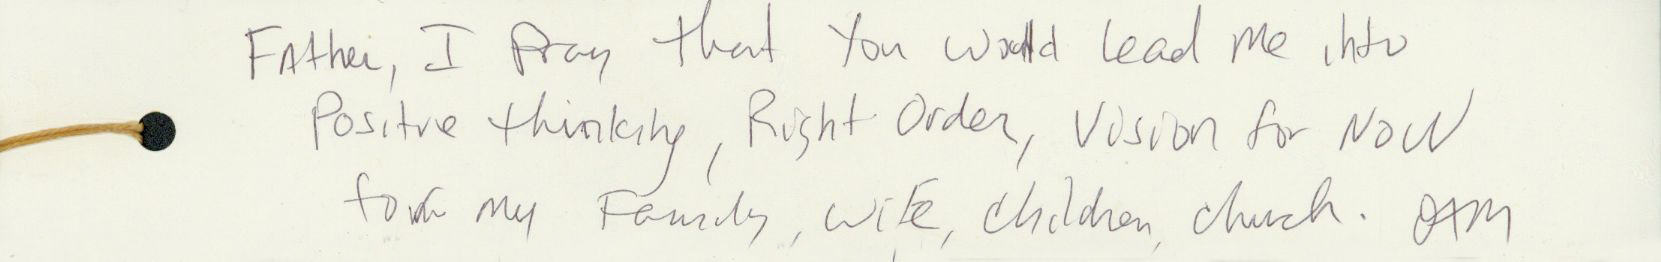 Father, I Pray that You would lead me into
Positive thinking, Right Order, Vision for Now
for my Family, wife, children, church.